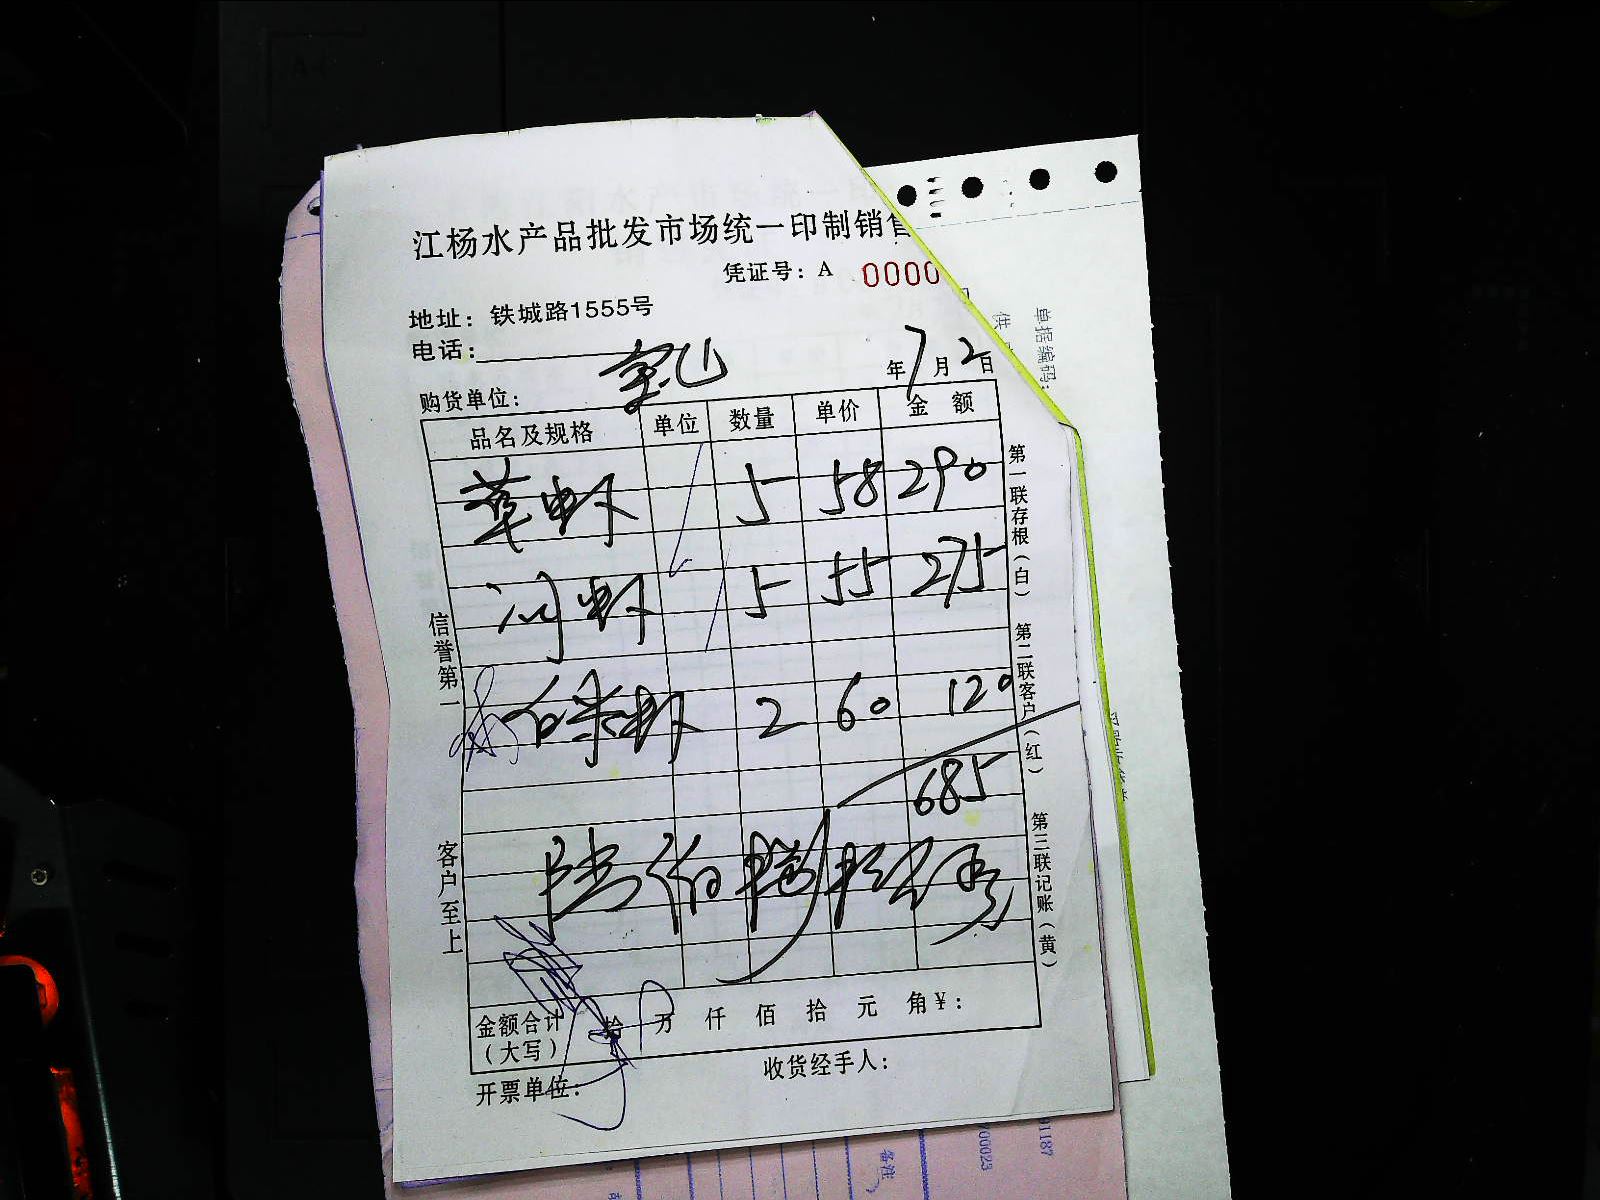 江杨水产品批发市场统一印制销售
凭证号：A 0000
地址：铁城路1555号
电话：
宝山
年7月2日
购货单位：
品名及规格 单位 数量 单价 金额
草虾 5 58 290
河虾 5 55 275
白米虾 2 60 120
685
陆佰捌拾伍
金额合计（大写） 拾 万 仟 佰 拾 元 角¥：
开票单位：
收货经手人：
信誉第一
客户至上
第一联存根（白）
第二联客户（红）
第三联记账（黄）
单据编码：
供
备注
700023
91187